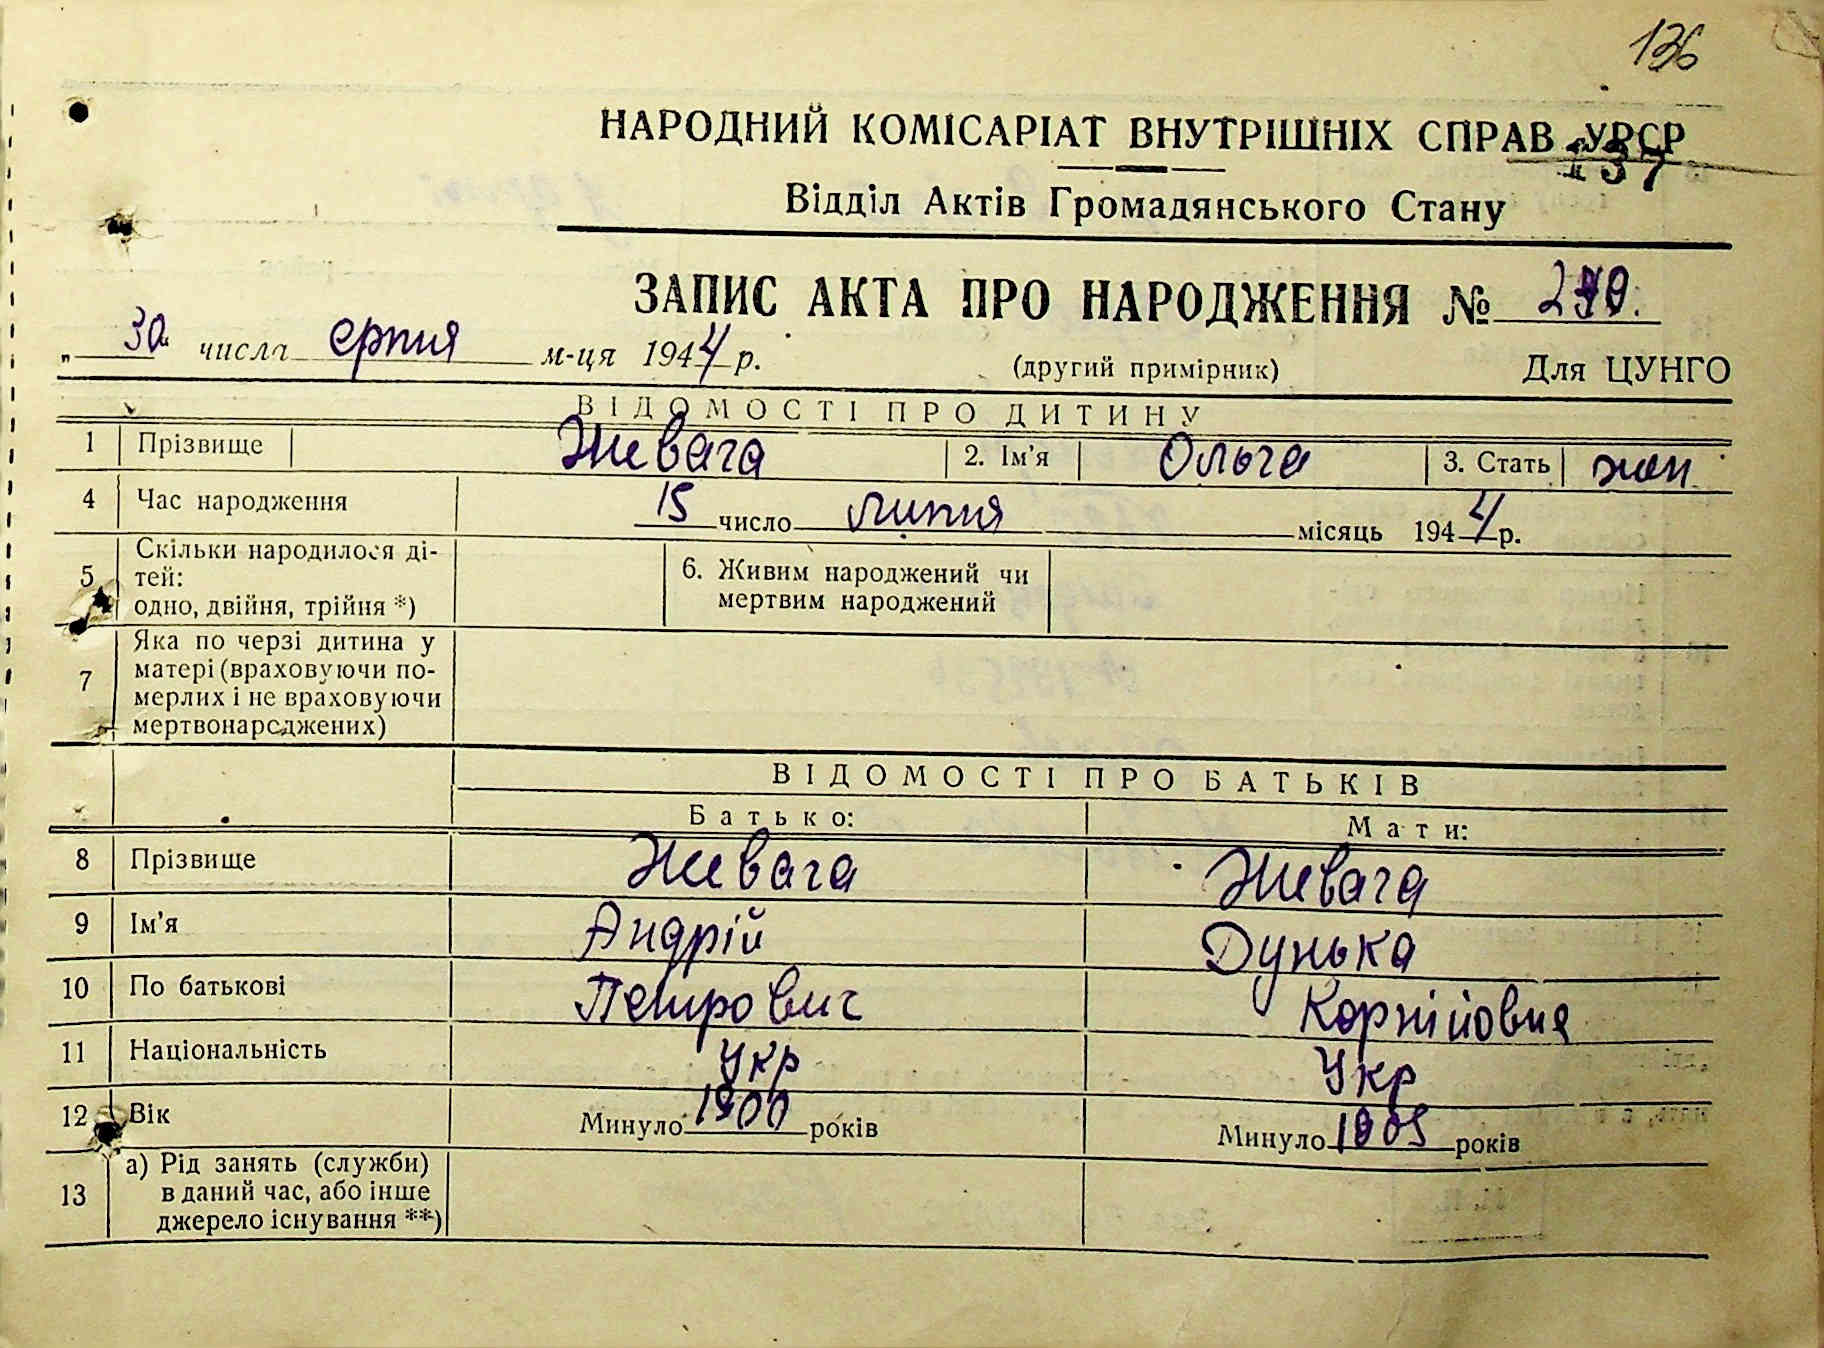 136
НАРОДНИЙ КОМІСАРІАТ ВНУТРІШНІХ СПРАВ УРСР
137
Відділ Актів Громадянського Стану
ЗАПИС АКТА ПРО НАРОДЖЕННЯ №
„ 30 “ числа серпня м-ця 1944 р. (другий примірник) Для ЦУНГО
ВІДОМОСТІ ПРО ДИТИНУ
1 Прізвище Жевага 2. Ім'я Ольга 3. Стать жен
4 Час народження 15 число липня місяць 1944 р.
5 Скільки народилося ді-
тей:
одно, двійня, трійня *)
6. Живим народжений чи
мертвим народжений
7 Яка по черзі дитина у
матері (враховуючи по-
мерлих і не враховуючи
мертвонароджених)
ВІДОМОСТІ ПРО БАТЬКІВ
Батько: Мати:
8 Прізвище Жевага Жевага
9 Ім'я Андрій Дунька
10 По батькові Петрович Корнійовна
11 Національність Укр Укр
12 Вік Минуло 1900 років Минуло 1905 років
13 а) Рід занять (служби)
в даний час, або інше
джерело існування **)